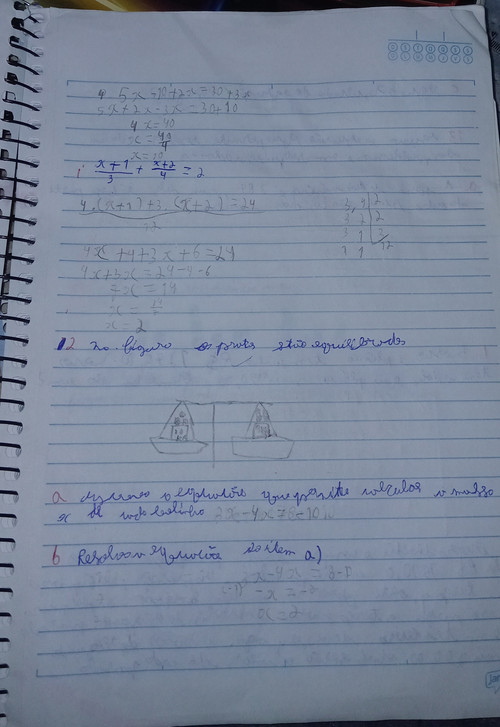 5x-10+2x=30+3x
5x+2x-3x=30+10
4x=40
x=40/4
x=10
i x+1/3 + x+2/4 = 2
4.(x+1)+3.(x+2)=24
12
3, 4 | 2
3, 2 | 2
3, 1 | 3
1, 1 | 12
4x+4+3x+6=24
4x+3x=24-4-6
7x=14
x=14/7
x=2
12 na figura os pratos estão equilibrados
a escreva a equação que permite calcular a massa
x de cada
b Resolva a equação do item a)
-x=-2
x=2